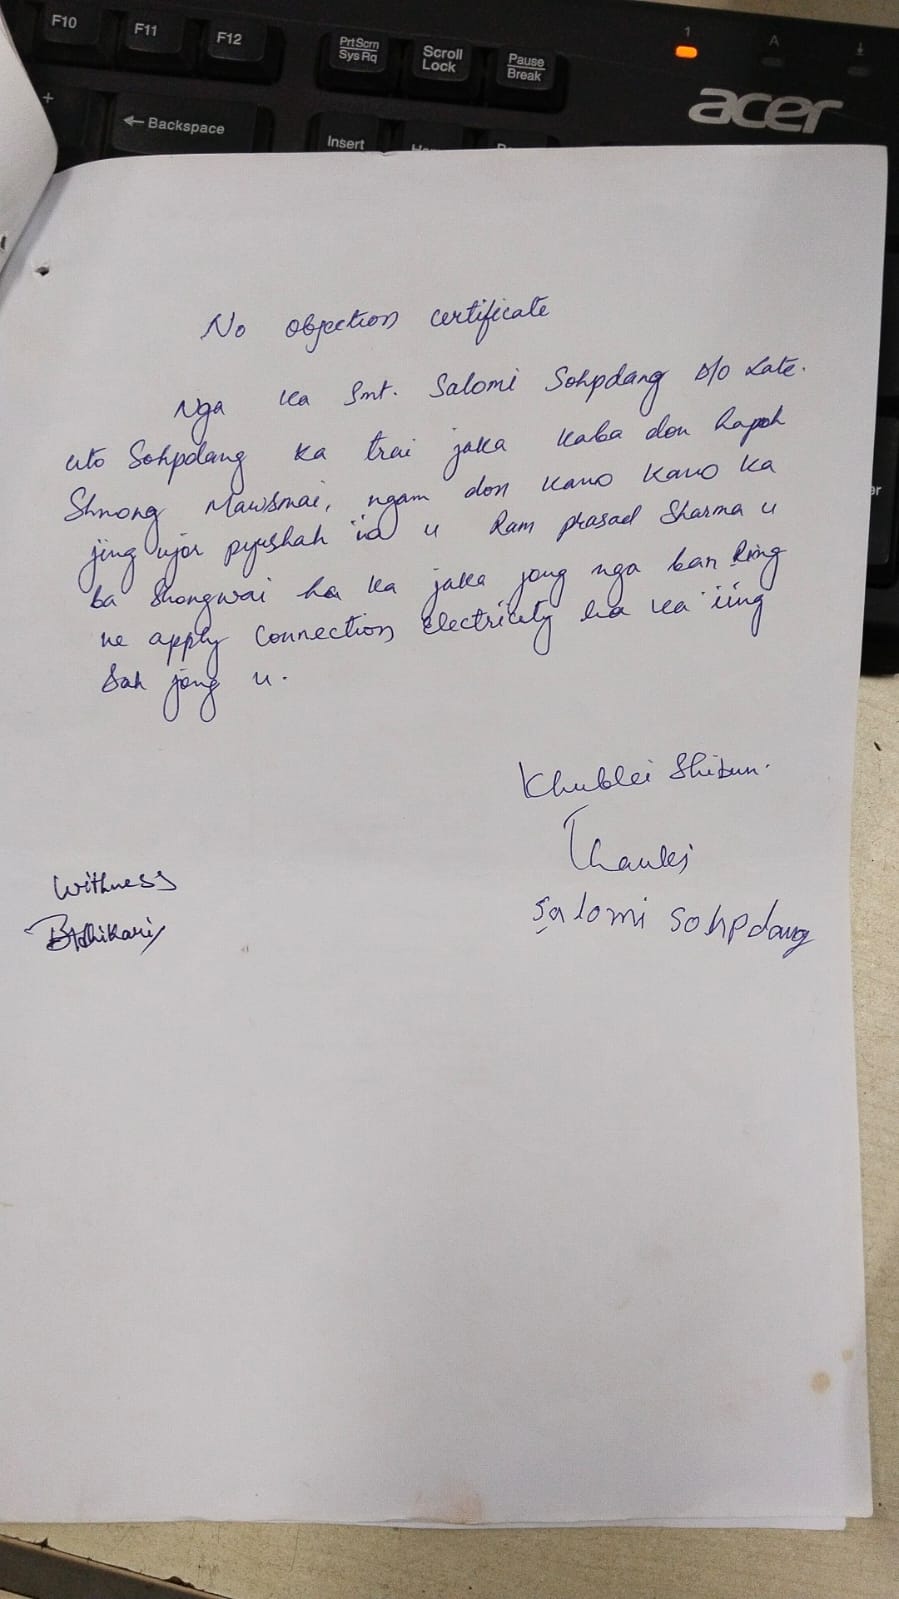 F10
F11
F12
PrtScrn
SysRq
Scroll
Lock
Pause
Break
1
A
acer
+
← Backspace
Insert
No objection certificate
Nga ka Smt. Salomi Sohpdang D/o Late.
uto Sohpdang ka trai jaka kaba don hapoh
Shnong Mawsmai, ngam don kano kano ka
jing ujor pyrshah ïa u Ram prasad Sharma u
ba Shongwai ha ka jaka jong nga ban Ring
ne apply connection Electricity ha ka ïing
Sah jong u.
Khublei Shibun.
Thanks
Salomi Sohpdang
Withness